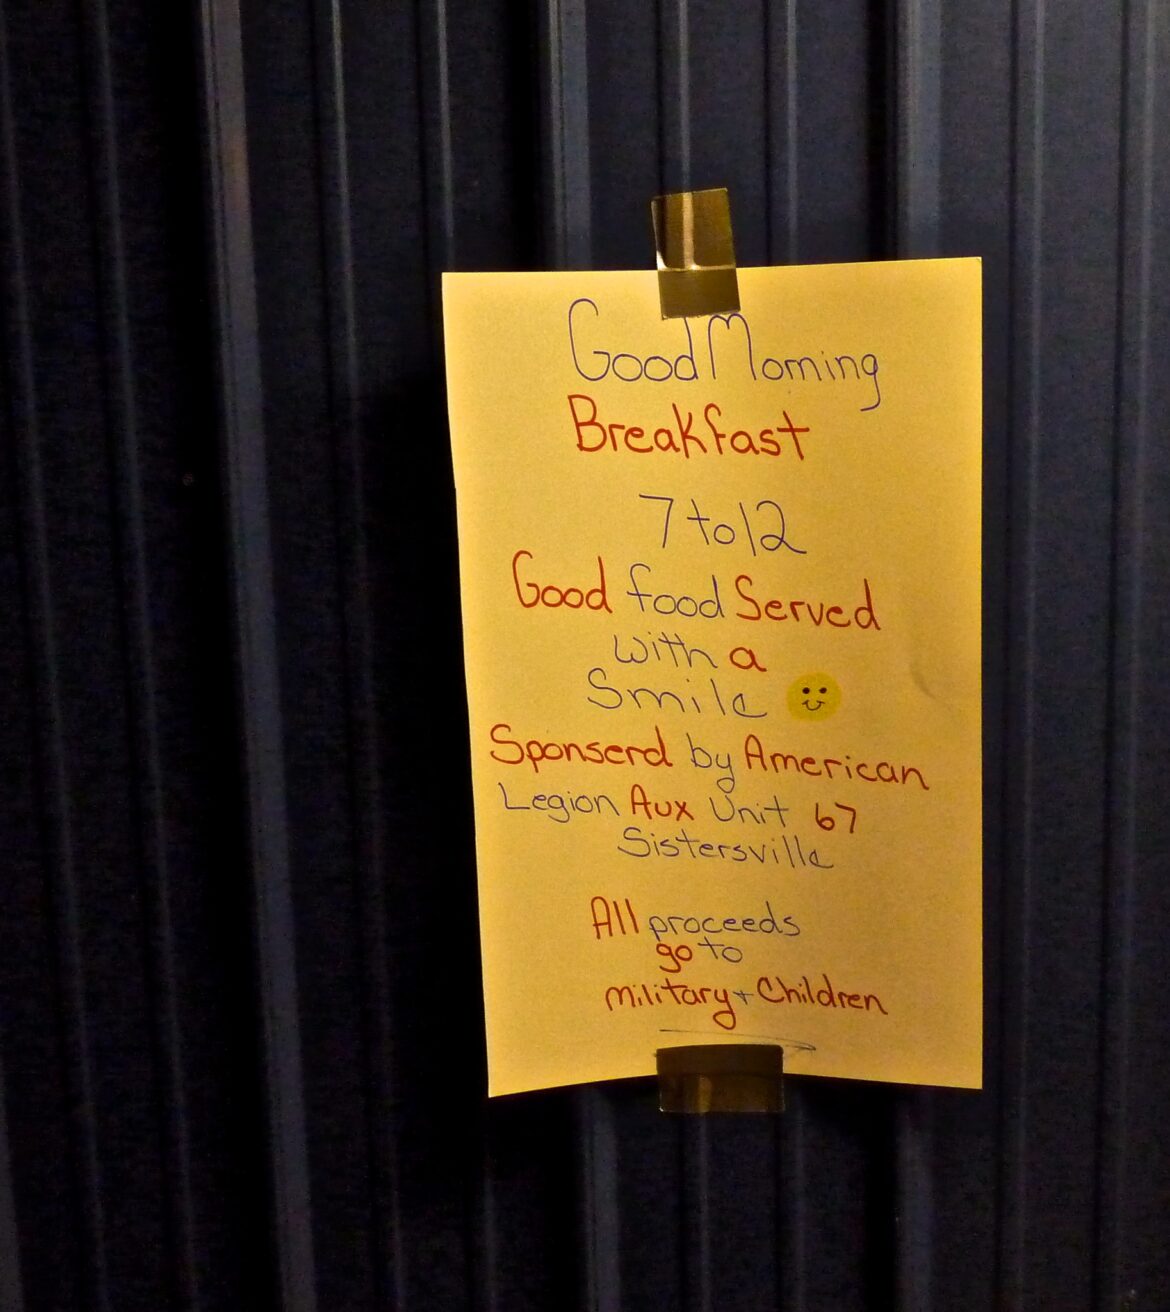 Good Morning
Breakfast
7 to 12
Good food Served
with a
Smile
Sponserd by American
Legion Aux Unit 67
Sistersville
All proceeds
go to
military + Children